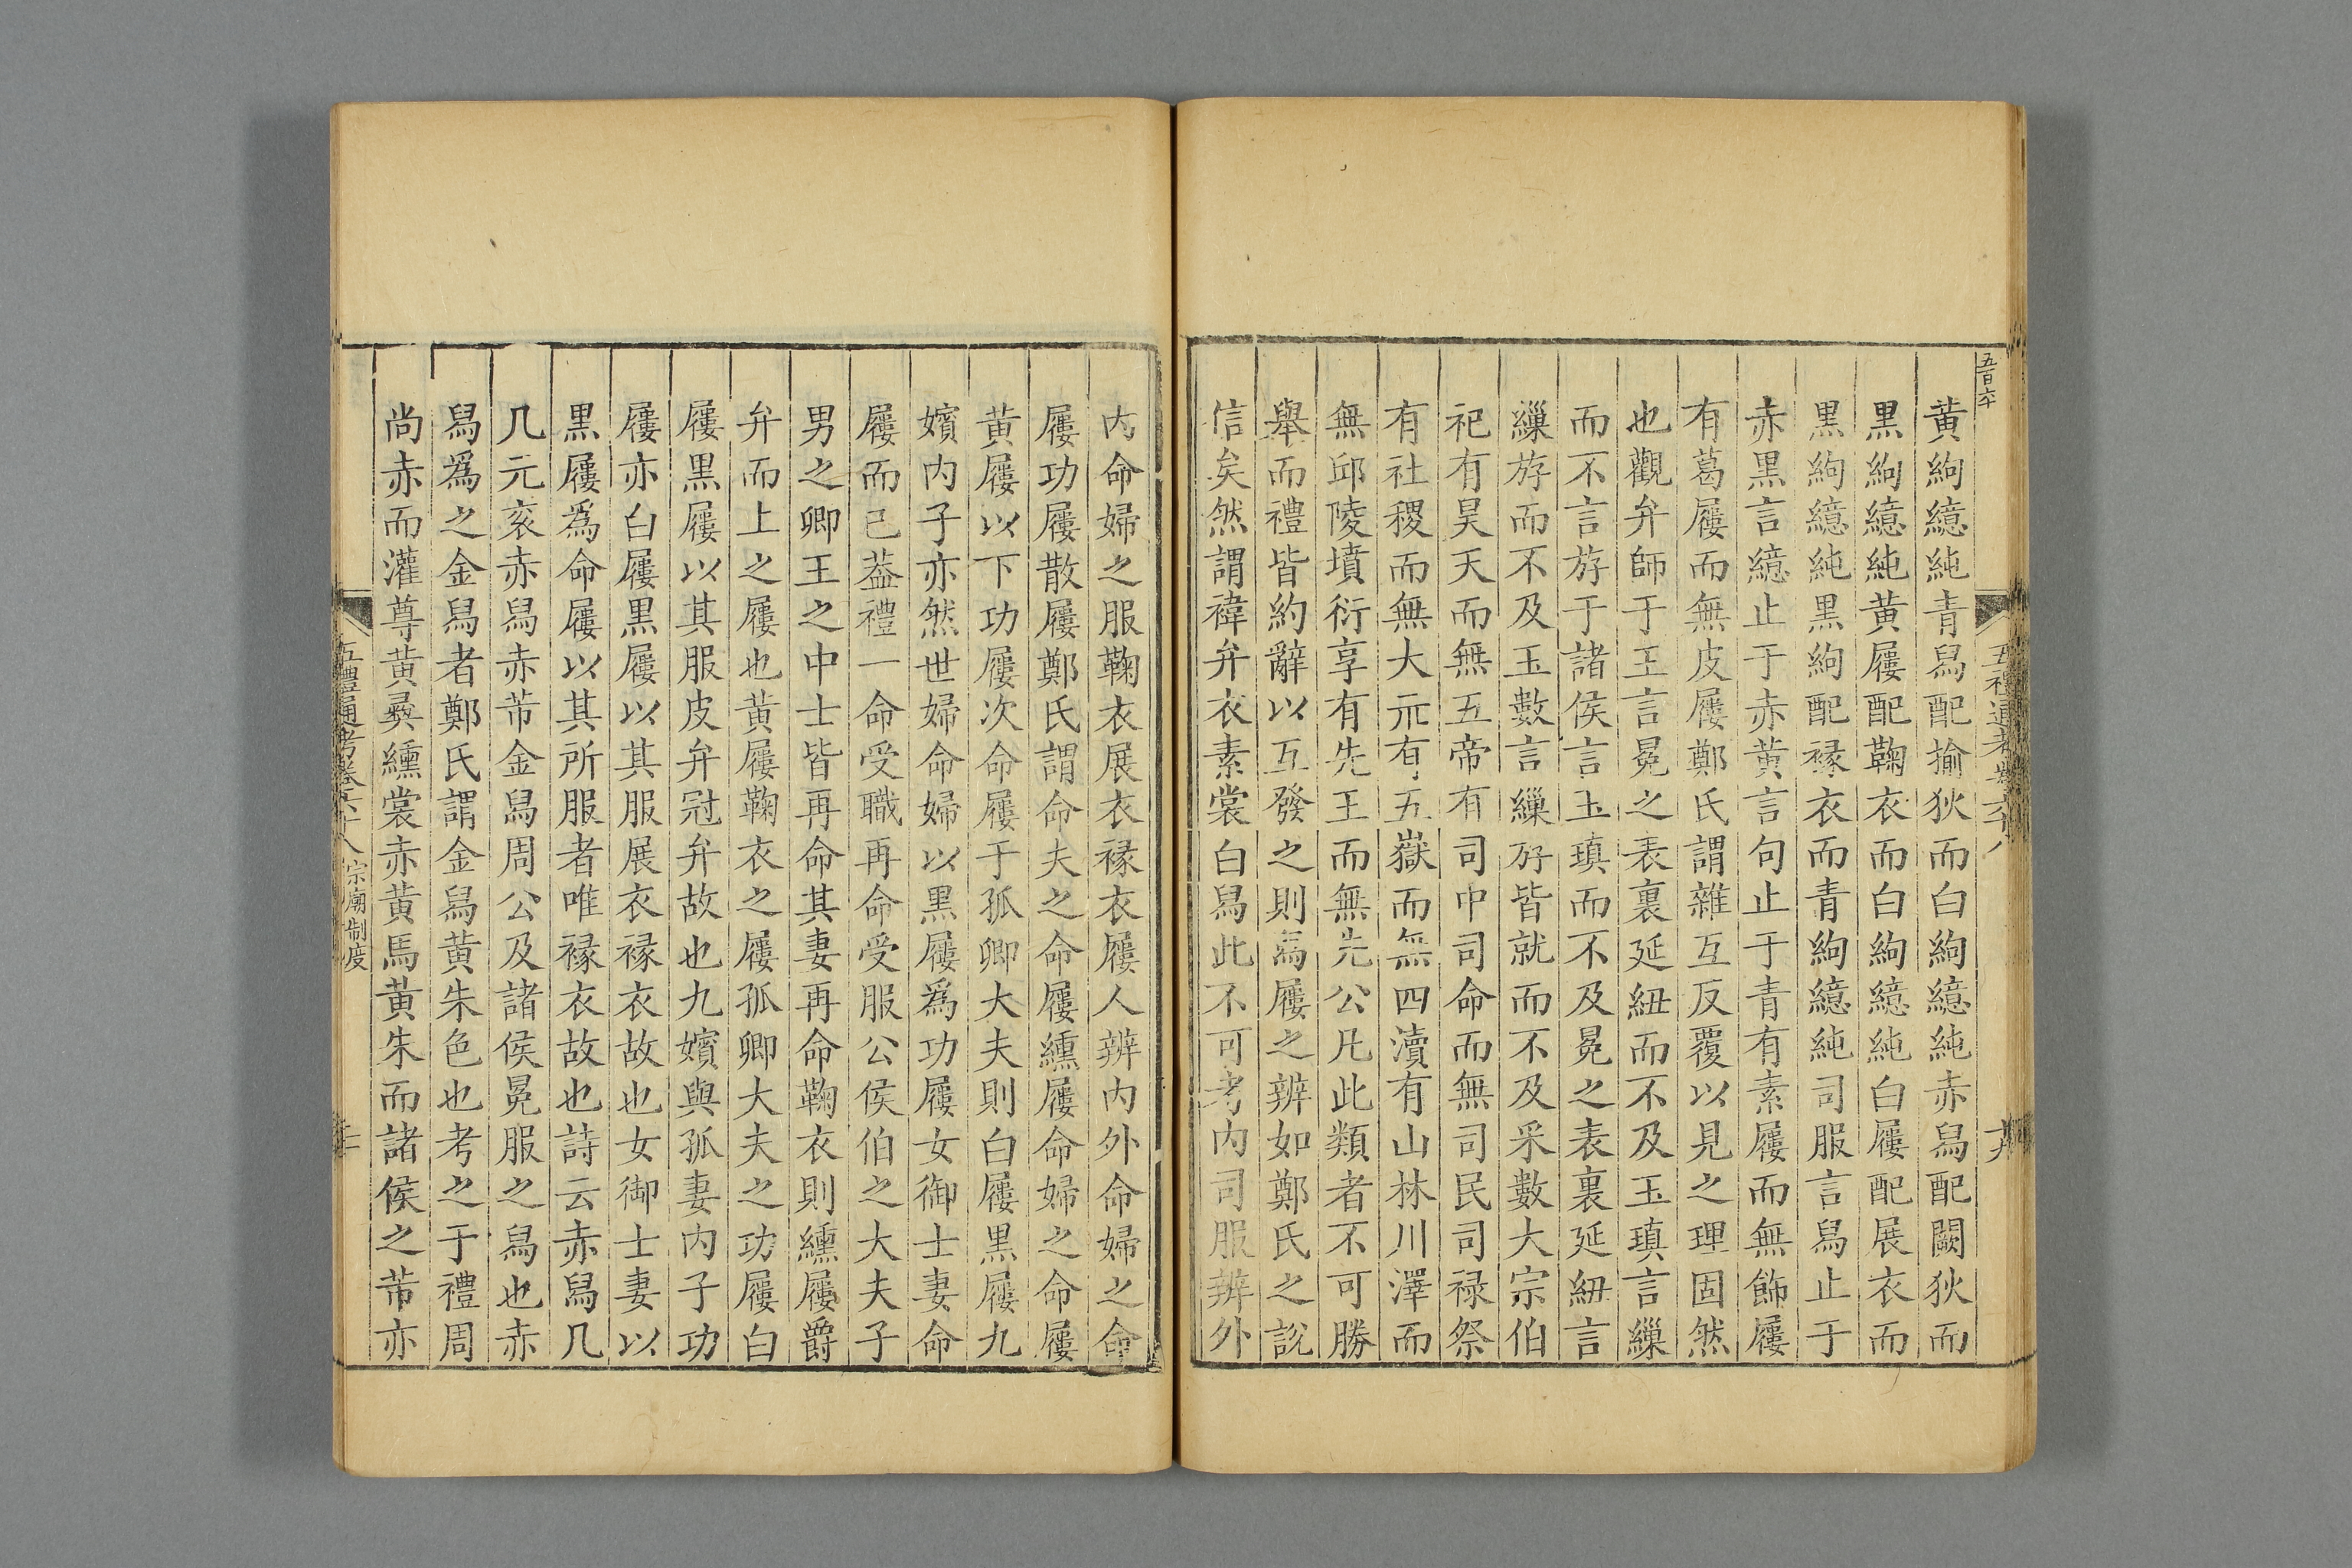 五百六十
五禮通考卷六十八
十九
黃絇繶純青舄配揄狄而白絇繶純赤舄配闕狄而
黑絇繶純黃屨配鞠衣而白絇繶純白屨配展衣而
黑絇繶純黑絇配褖衣而青絇繶純司服言舄止于
赤黑言繶止于赤黃言句止于青有素屨而無飾屨
有葛屨而無皮屨鄭氏謂雜互反覆以見之理固然
也觀弁師于王言冕之表裏延紐而不及玉瑱言繅
而不言斿于諸侯言玉瑱而不及冕之表裏延紐言
繅斿而不及玉數言繅斿皆就而不及采數大宗伯
祀有昊天而無五帝有司中司命而無司民司祿祭
有社稷而無大示有五嶽而無四瀆有山林川澤而
無邱陵墳衍享有先王而無先公凡此類者不可勝
舉而禮皆約辭以互發之則爲屨之辨如鄭氏之說
信矣然謂褘弁衣素裳白舄此不可考內司服辨外
內命婦之服鞠衣展衣褖衣屨人辨內外命婦之命
屨功屨散屨鄭氏謂命夫之命屨纁屨命婦之命屨
黃屨以下功屨次命屨于孤卿大夫則白屨黑屨九
嬪內子亦然世婦命婦以黑屨爲功屨女御士妻命
屨而已葢禮一命受職再命受服公侯伯之大夫子
男之卿王之中士皆再命其妻再命鞠衣則纁屨爵
弁而上之屨也黃屨鞠衣之屨孤卿大夫之功屨白
屨黑屨以其服皮弁冠弁故也九嬪與孤妻內子功
屨亦白屨黑屨以其服展衣褖衣故也女御士妻以
黑屨爲命屨以其所服者唯褖衣故也詩云赤舄几
几元衮赤舄赤芾金舄周公及諸侯冕服之舄也赤
舄爲之金舄者鄭氏謂金舄黃朱色也考之于禮周
尚赤而灌尊黃彝纁裳赤黃馬黃朱而諸侯之芾亦
五禮通考卷六十八
宗廟制度
二十